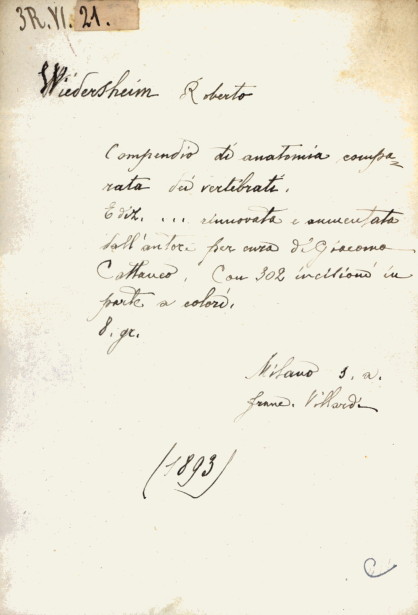 3R. VI. 21.
Wiedersheim Roberto
Compendio di anatomia compa=
rata dei vertebrati.
Ediz. ... rinnovata e aumentata
dall'autore per cura di Giacomo
Cattaneo. Con 302 incisioni in
parte a colori.
8. gr.
Milano s. a.
Franc. Vallardi
(1893)
C